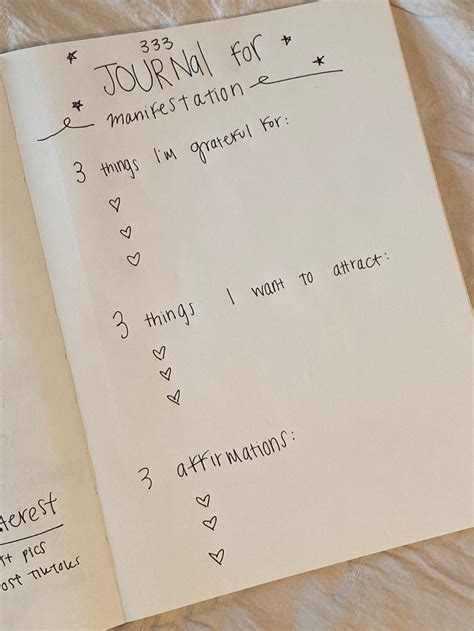 333
JOURNAL FOR
manifestation
3 things I'm grateful for:
♡
♡
♡
3 things I want to attract:
♡
♡
♡
3 affirmations:
♡
♡
♡
pics
TikToks